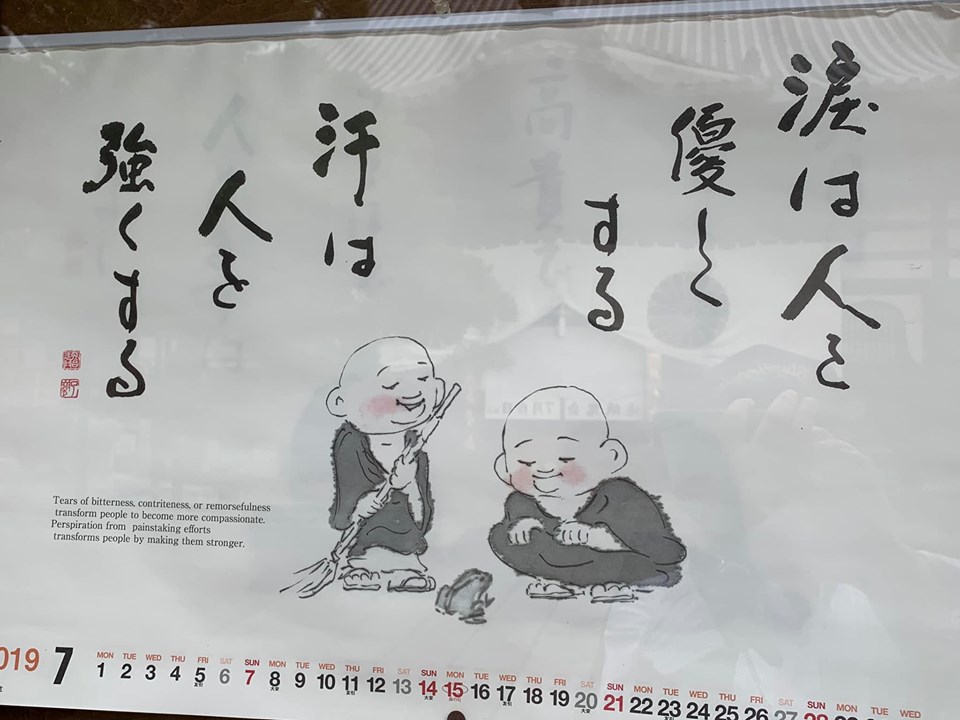 涙は人を
優しく
する
汗は
人を
強くする
Tears of bitterness, contriteness, or remorsefulness
transform people to become more compassionate.
Perspiration from painstaking efforts
transforms people by making them stronger.
019 7
MON TUE WED THU FRI SAT SUN MON TUE WED THU FRI SAT SUN MON TUE WED THU FRI SAT SUN MON TUE WED THU FRI SAT SUN MON TUE WED
1 2 3 4 5 6 7 8 9 10 11 12 13 14 15 16 17 18 19 20 21 22 23 24 25 26 27 28